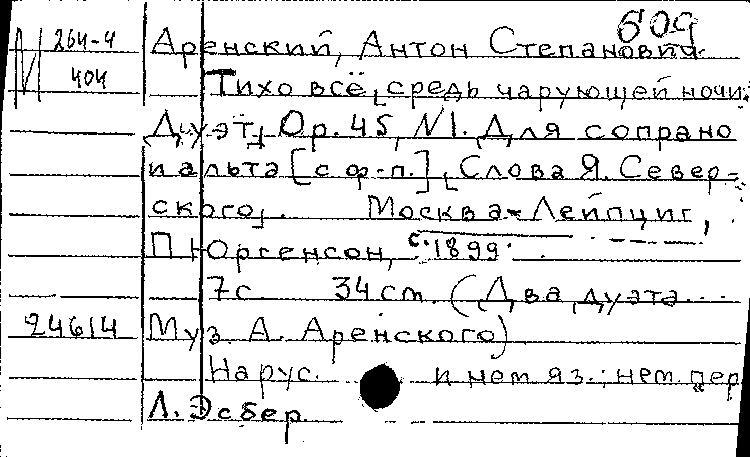 609
264-4 Аренский, Антон Степанович.
404 Тихо всё, средь чарующей ночи.
Дуэт, Op. 45, N1. Для сопрано
и альта [с ф-п.], Слова Я. Север-
ского,. Москва-Лейпциг,
П. Юргенсон, с. 1899.
7 с 34 cm. (Два дуэта...
24614 Муз. А. Аренского)
На рус. и нем яз.; нем. пер
Л. Эсбер.